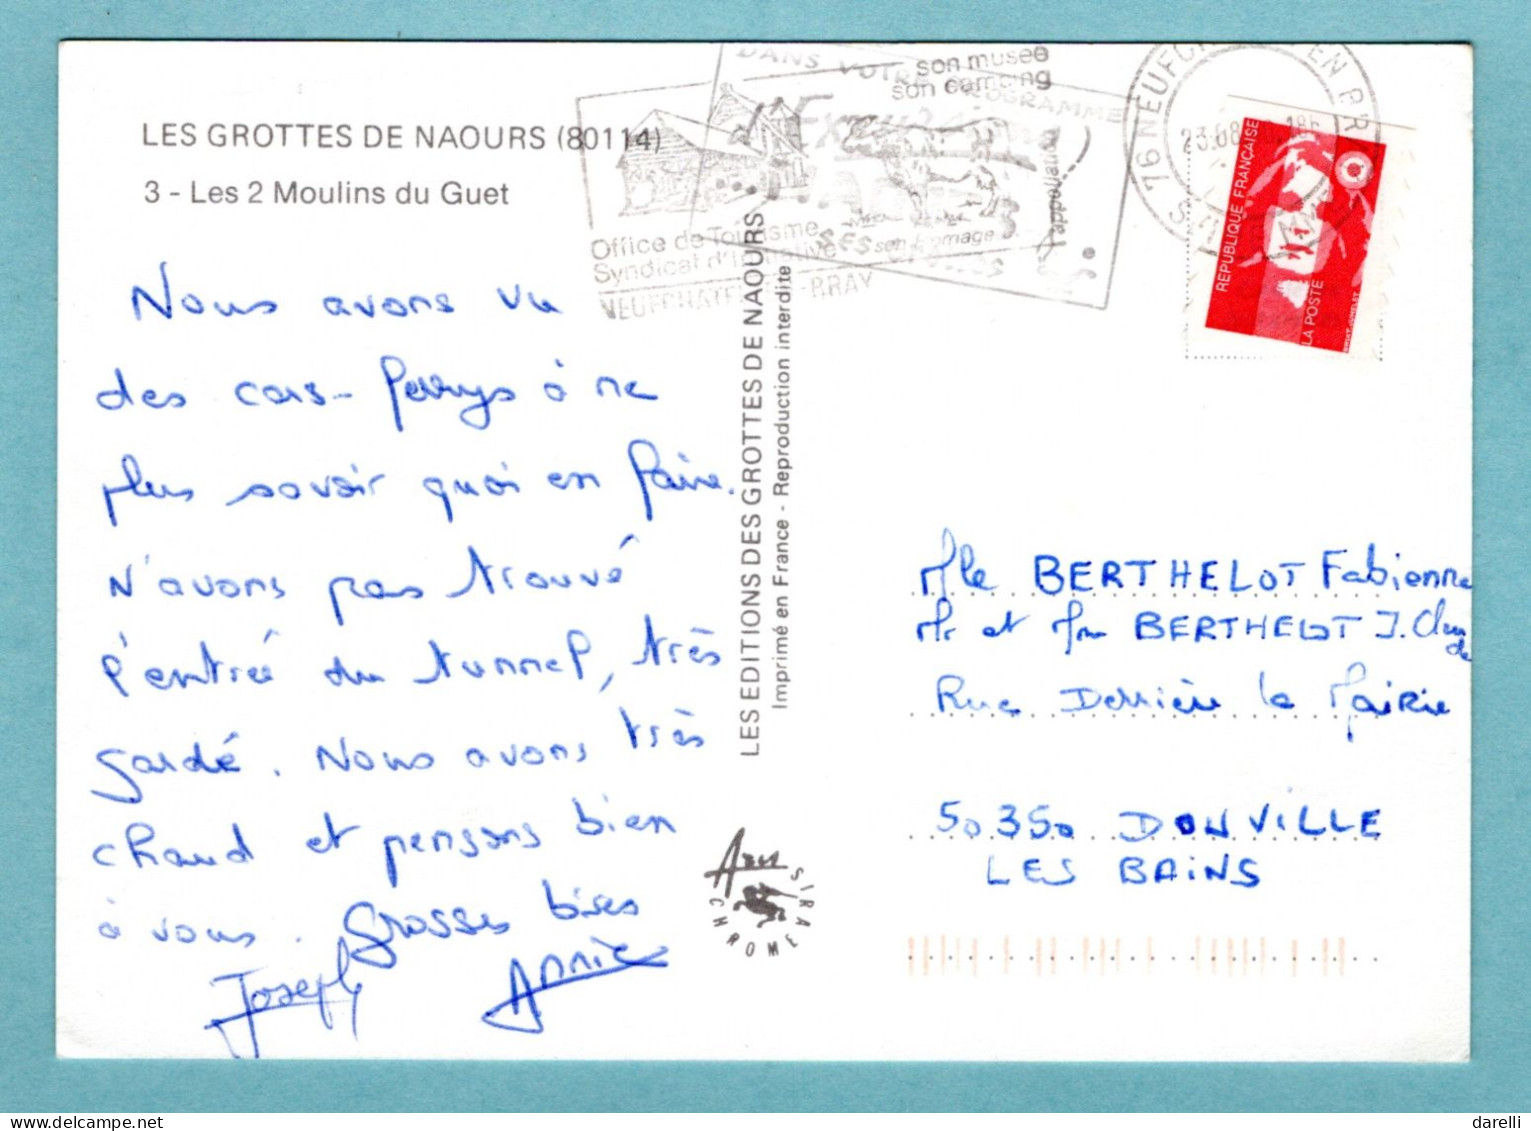 LES GROTTES DE NAOURS (80114)
3 - Les 2 Moulins du Guet
Nous avons vu
des cars-ferrys à ne
plus savoir quoi en faire.
N'avons pas trouvé
l'entrée du tunnel, très
gardé. Nous avons très
chaud et pensons bien
à vous. Grosses bises
Joseph Annie
LES EDITIONS DES GROTTES DE NAOURS
Imprimé en France - Reproduction interdite
As de Cœur
CHROME
DANS VOTRE PROGRAMME
son musée
son camping
son fromage
l'appellation
SES
Office de Tourisme
Syndicat d'Initiative
NEUFCHATEL-EN-BRAY
76 NEUFCHATEL EN BRAY
REPUBLIQUE FRANÇAISE
LA POSTE
Mle BERTHELOT Fabienne
Mr et Mme BERTHELOT J. Claude
Rue Derrière la Mairie
50350 DONVILLE
LES BAINS
darelli